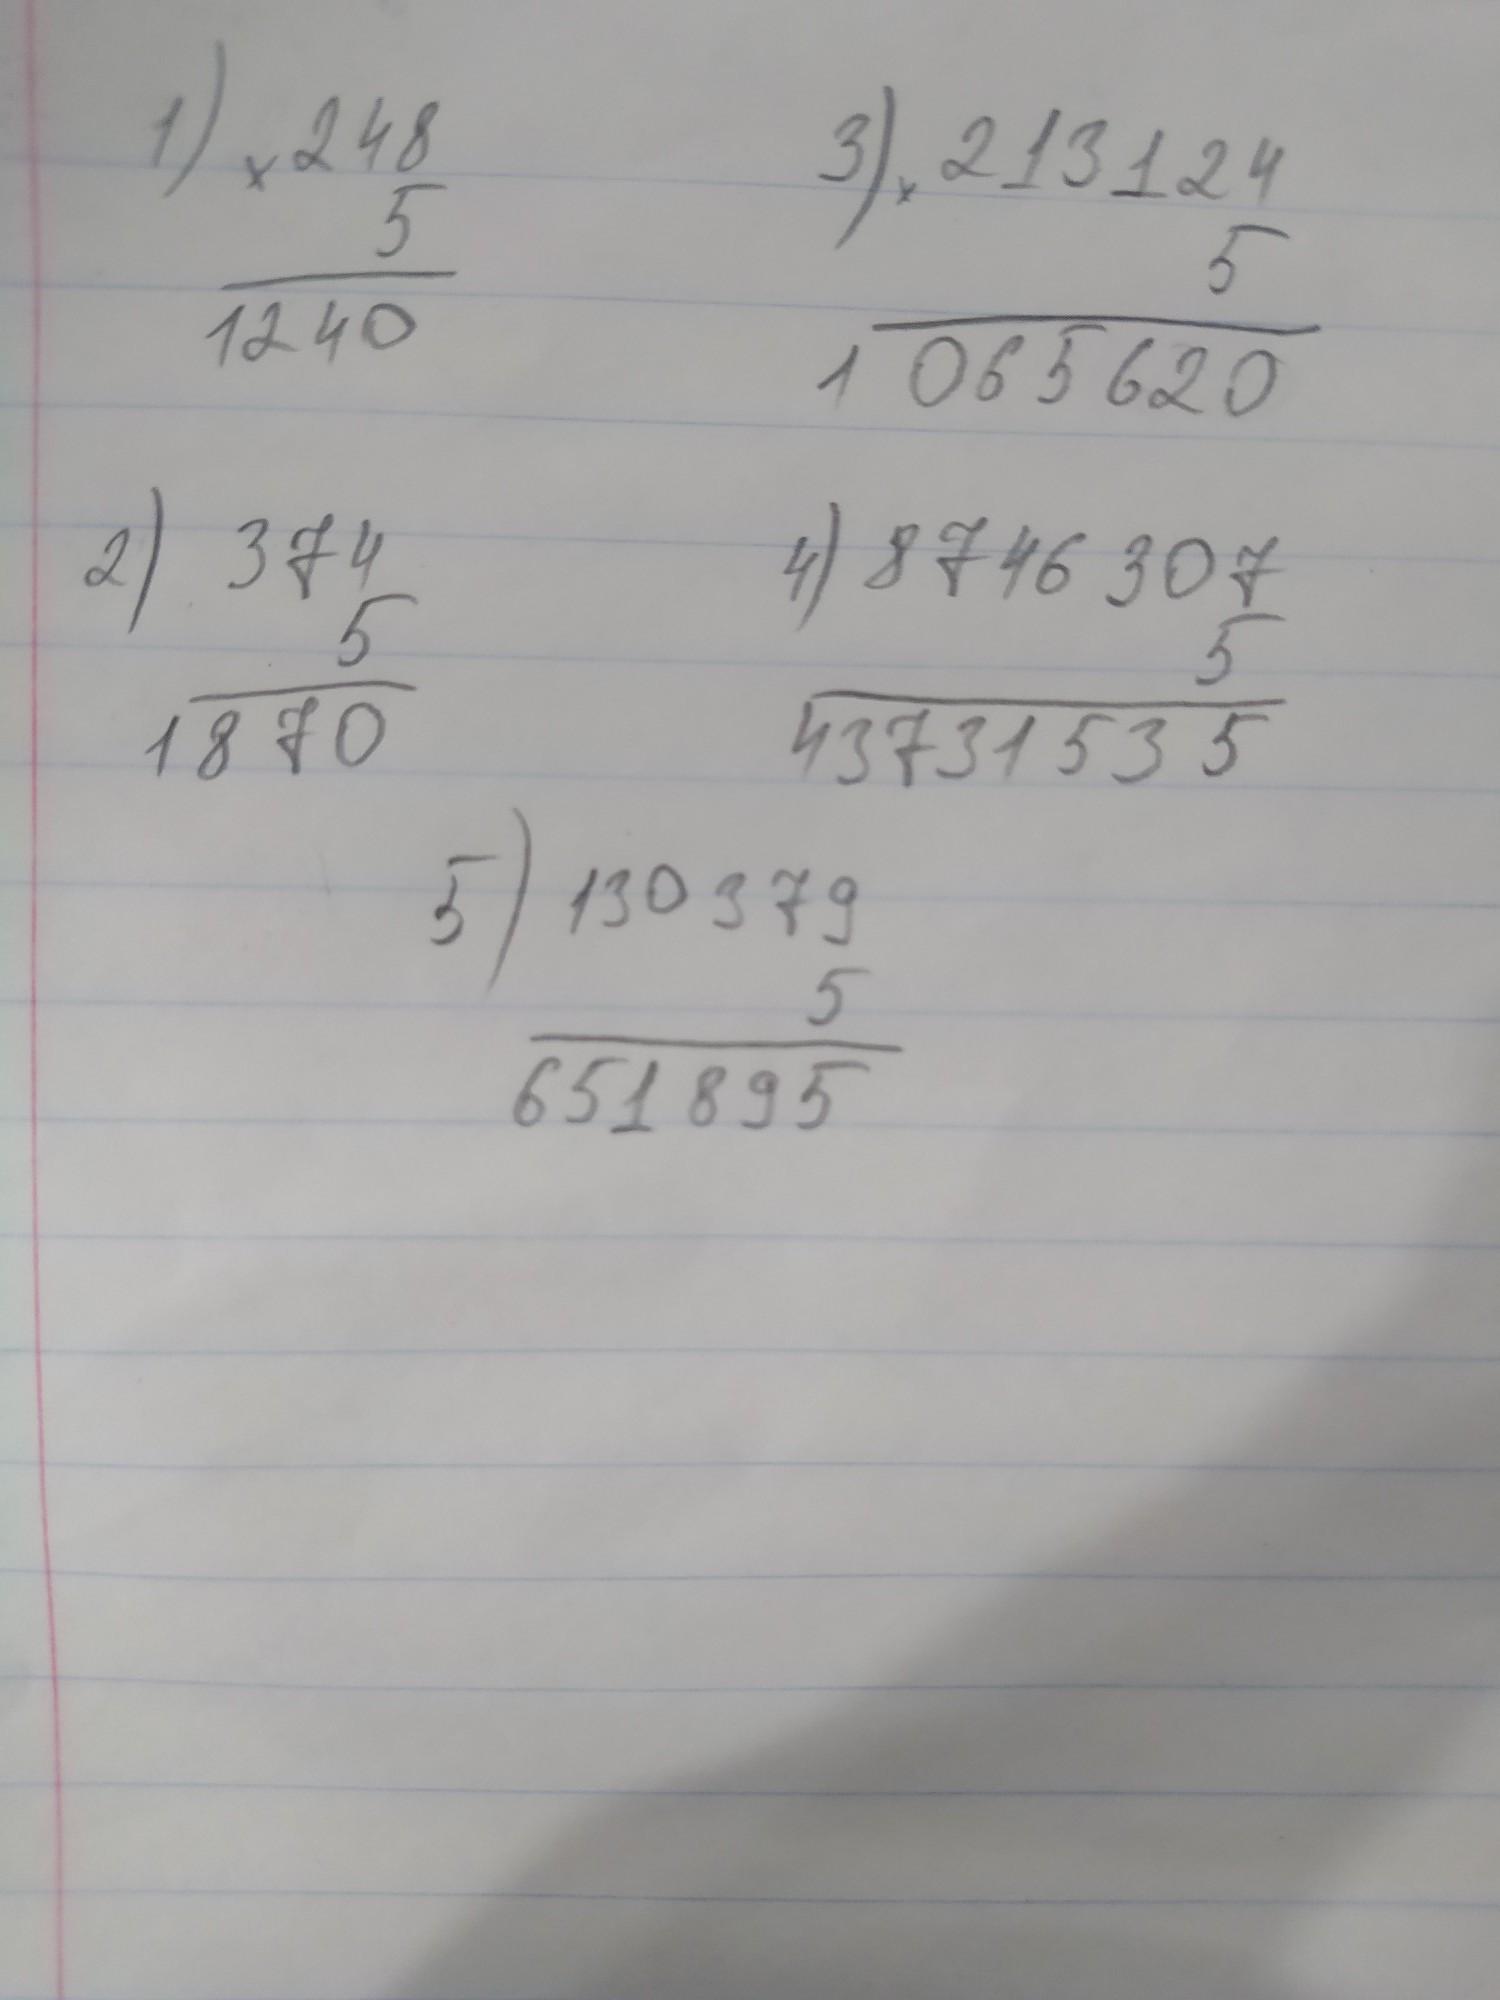 1) × 248
5
1240
2) 374
5
1870
3) × 213124
5
1 065620
4) 8746307
5
43731535
5) 130379
5
651895